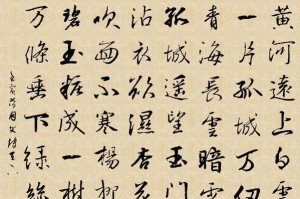 黄河遠上白雲
一片孤城万仞
青海長雲暗雪
孤城遥望玉门
沾衣欲濕杏花
吹面不寒楊柳
碧玉妆成一樹
万條垂下绿絲